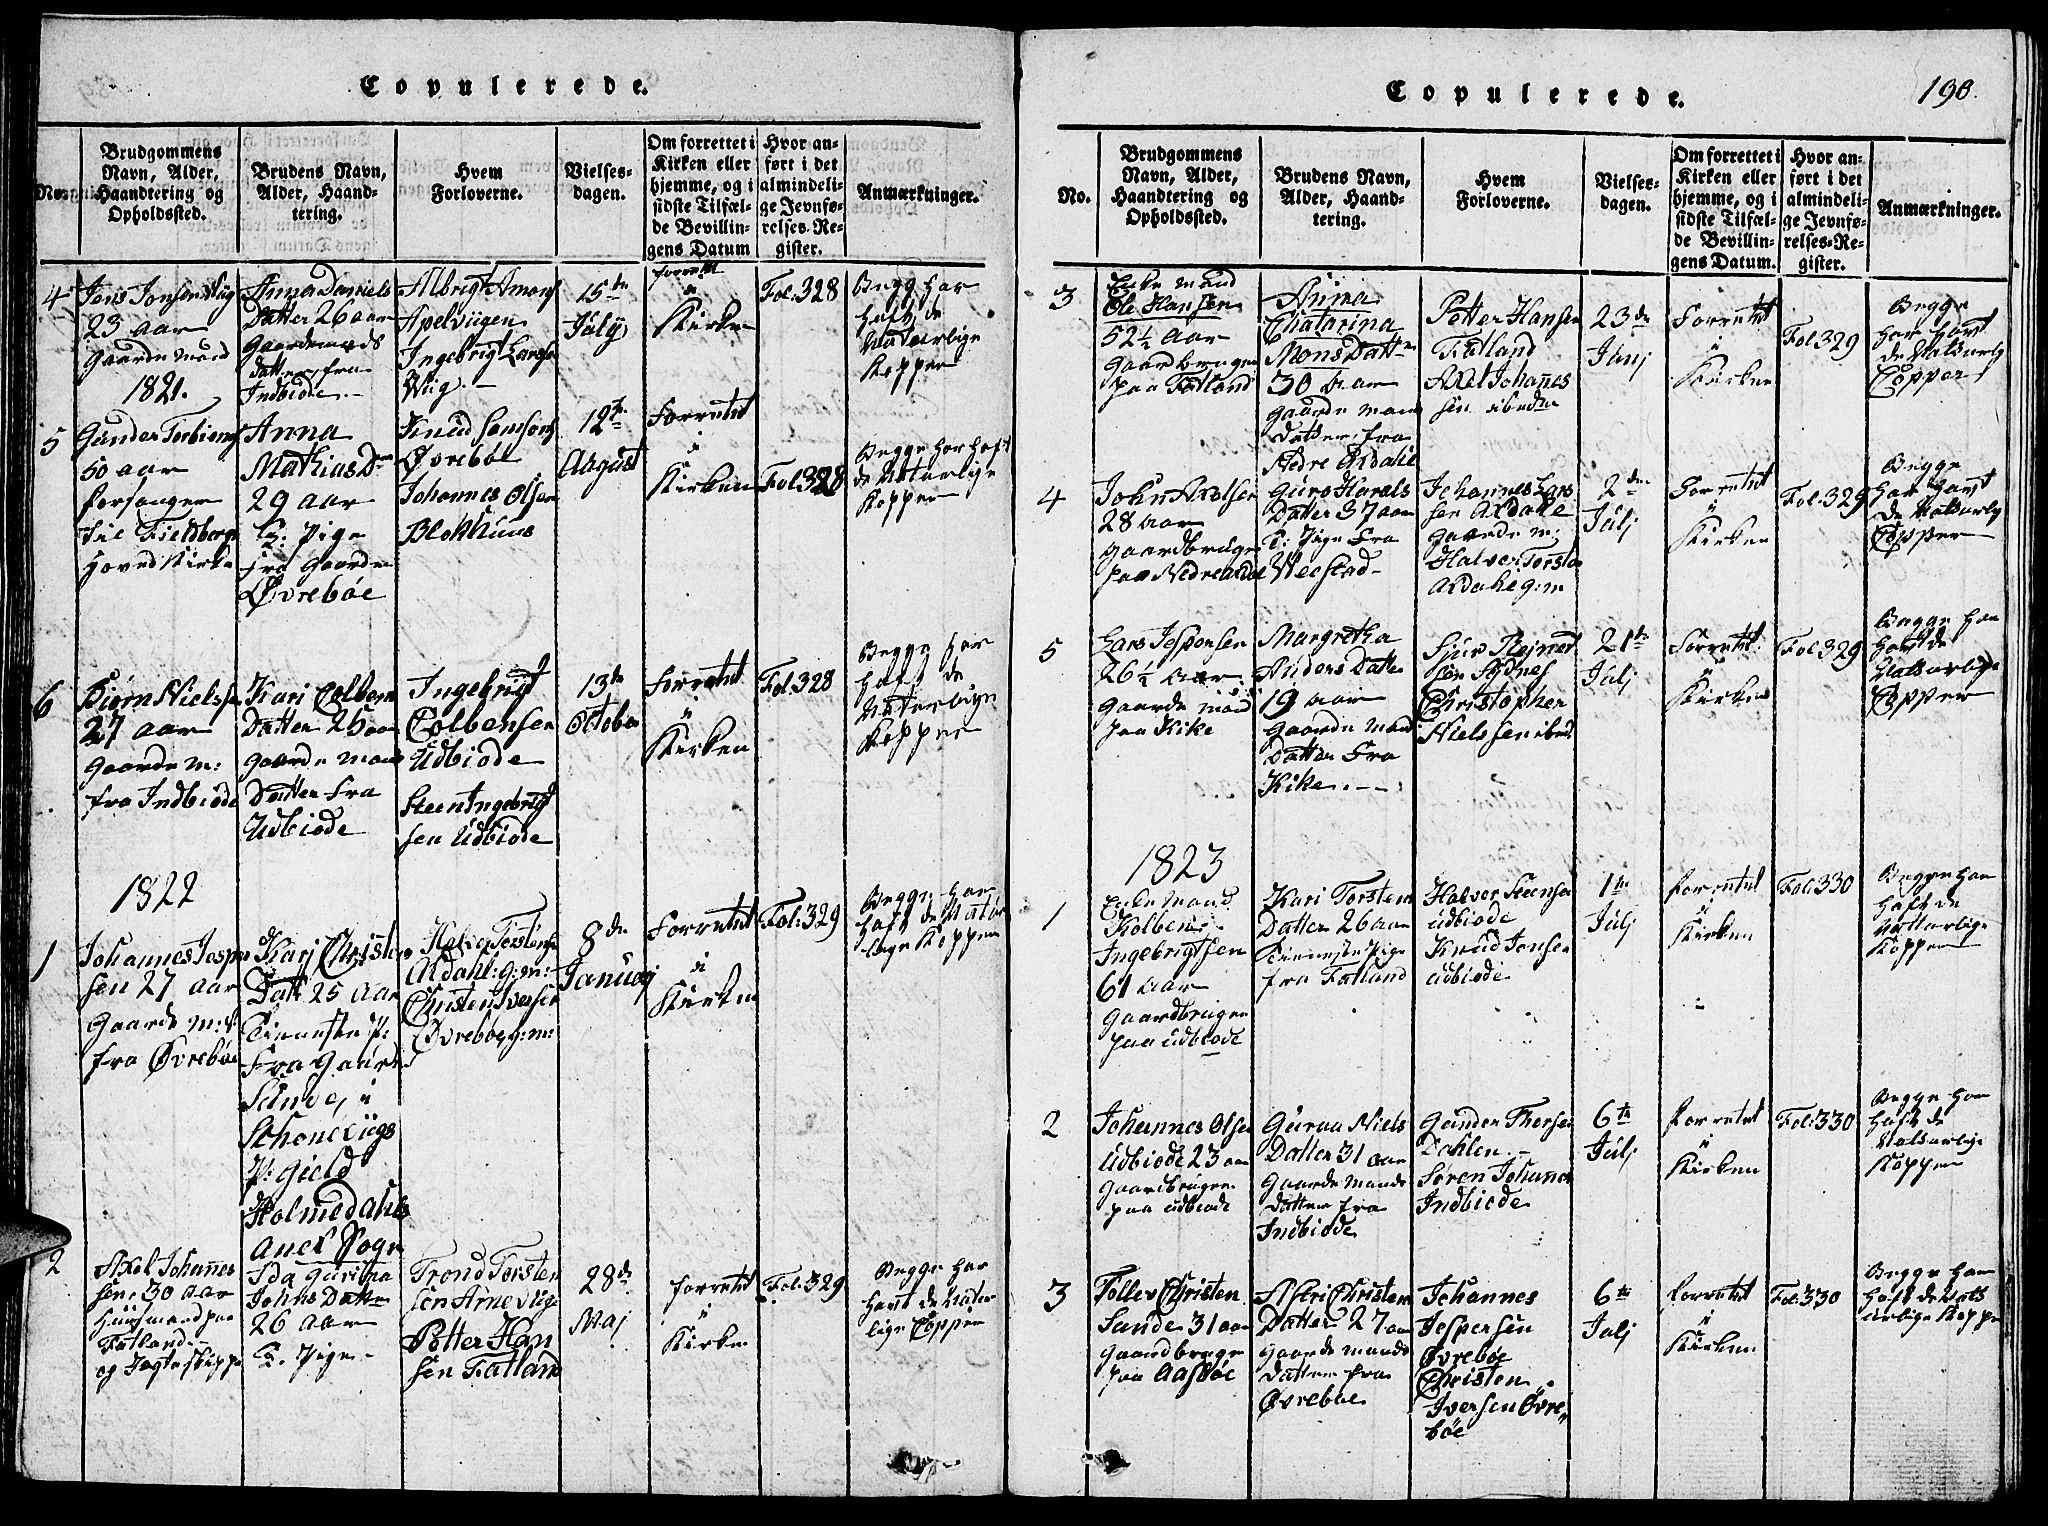 Copulerede.
No.
Brudgommens
Navn, Alder,
Haandtering og
Opholdssted.
Brudens Navn,
Alder, Haand-
tering.
Hvem
Forloverne.
Vielses-
dagen.
Om forrettet i
Kirken eller
hjemme, og i
sidste Tilfæl-
de Bevillin-
gens Datum
Hvor an-
ført i det
almindeli-
ge Jevnfø-
relses-Re-
gister.
Anmærkninger.
4
Jens Jonsen
23 aar
Gaardemand
1821.
Anna Daniels
Datter 26 aar
Gaardemands
Datter fra
Indbiöde
Albrigt Amons
Apelviigen
Ingebrigt Larsen
Wiig.
15de
July
forrettet
i
Kirken
Fol: 328
Begge har
haft de
Naturlige
Kopper
5
Gunder Torbiens
50 aar
forsanger
til Fieldberg
Hoved Kirke
Anna
Mathias Dr
29 aar
T. Pige
fra Gaarden
Øvreböe
Knud Samsons
Øvreböe
Johannes Olsen
Blokhuus
12te
August
Forrettet
i
Kirken
Fol: 328
Begge har haft
de Naturlige
Kopper
6
Biørn Nielssen
27 aar
Gaarde m:
fra Indbiöde
Kari Colbens
Datter 25 aar
Gaarde mans
Datter fra
Udbiode
Ingebrigt
Colbensen
Udbiode
Steen Ingebrigt
sen Udbiode
13de
October
Forrettet
i
Kirken
Fol: 328
Begge har
haft de
Naturlige
Kopper
1822
1
Johannes Jesper
sen 27 aar
Gaarde m:
fra Øvreböe
Kari Christens
Datt 25 Aar
Tieneste P:
Fra Gaard
Sande, i
Schonevigs
P: gield
Holmedahls
Anex Sogn
Halver Torstens
Aldahl: g: m:
Christen Iversen
Øvreböe g: m:
8de
Januarj
Forrettet
i
Kirken
Fol: 329
Begge har
haft de Natur
lige Kopper
2
Axel Johannes
sen, 30 aar
Huusmand paa
Fatland
og Jagteskipper
Ida Gurina
Johns Datter
26 aar
T. Pige
Trond Torsten
sen Arnevig
Petter Han
sen Fatland
28de
Maj
forrettet
i
Kirken
Fol: 329
Begge har
havt de Natur
lige Copper
Copulerede.
190.
No.
Brudgommens
Navn, Alder,
Haandtering og
Opholdssted.
Brudens Navn,
Alder, Haand-
tering.
Hvem
Forloverne.
Vielses-
dagen.
Om forrettet i
Kirken eller
hjemme, og i
sidste Tilfæl-
de Bevillin-
gens Datum.
Hvor an-
ført i det
almindeli-
ge Jevnfø-
relses-Re-
gister.
Anmærkninger.
3
Enke Mand
Ole Hansen
52½ aar
Gaardbruger
paa Fatland
Anna
Chatarina
Mons Datter
30 aar
Gaarde mans
Datter fra
Nedre Axdahl
Petter Hansen
Fatland
Axel Johannes
sen ibedm
23de
Junj
Forrettet
i
Kirken
Fol: 329
Begge
har havt
de Naturlig
Copper
4
John Axelsen
28 aar
Gaardbruger
paa Nedre Axdal
Guro Haralds
Datter 37 aar
T: Pige fra
Weestad
Johannes Lars
sen Axdahl
Gaarde m:
Halver Torsten
Axdahl g: m
2den
Julj
Forrettet
i
Kirken
Fol: 329
Begge
har havt
de Naturlig
Copper
5
Lars Jespersen
26½ Aar
Gaarde mand
paa Kike
Margretha
Anders Datter
19 aar
Gaarde mands
Datter fra
Kike.
Sjur Rejnert
sen Sydnes
Christopher
Nielssen ibed
21de
Julj
Forrettet
i
Kirken
Fol: 329
Begge har
havt de
Naturlige
Copper
1823
1
Enke Mand
Kolben
Ingebrigtsen
61 aar
Gaardbruger
paa Udbiode
Kari Torstens
Datter 26 aar
Tieneste Pige
fra Fatland
Halver Steensen
Udbiode
Knud Jonsen
Udbiode
1te
Julj
forrettet
i
Kirken
Fol: 330
Begge har
haft de
Naturlige
Kopper
2
Johannes Olsen
Udbiode 23 aar
Gaardbruger
paa Udbiode
Guraa Niels
Datter 31 aar
Gaarde Mands
Datter fra
Indbiöde
Gunder Thorsen
Dahlen
Søren Johannes
Indbiode
6te
Julj
forrettet
i
Kirken
Fol: 330
Begge har
haft de
Naturlige
Kopper
3
Tollev Christen
Sande 31 aar
Gaardbruger
paa Aasböe
Astri Christens
Datter 27 aar
Gaarde mands
Datter fra
Øvreböe
Johannes
Jespersen
Øvreböe
Christen
Iversen Øvre,,
böe
6te
Julj
forrettet
i
Kirken
Fol: 330
Begge har
haft de Nat
urlige Kopper